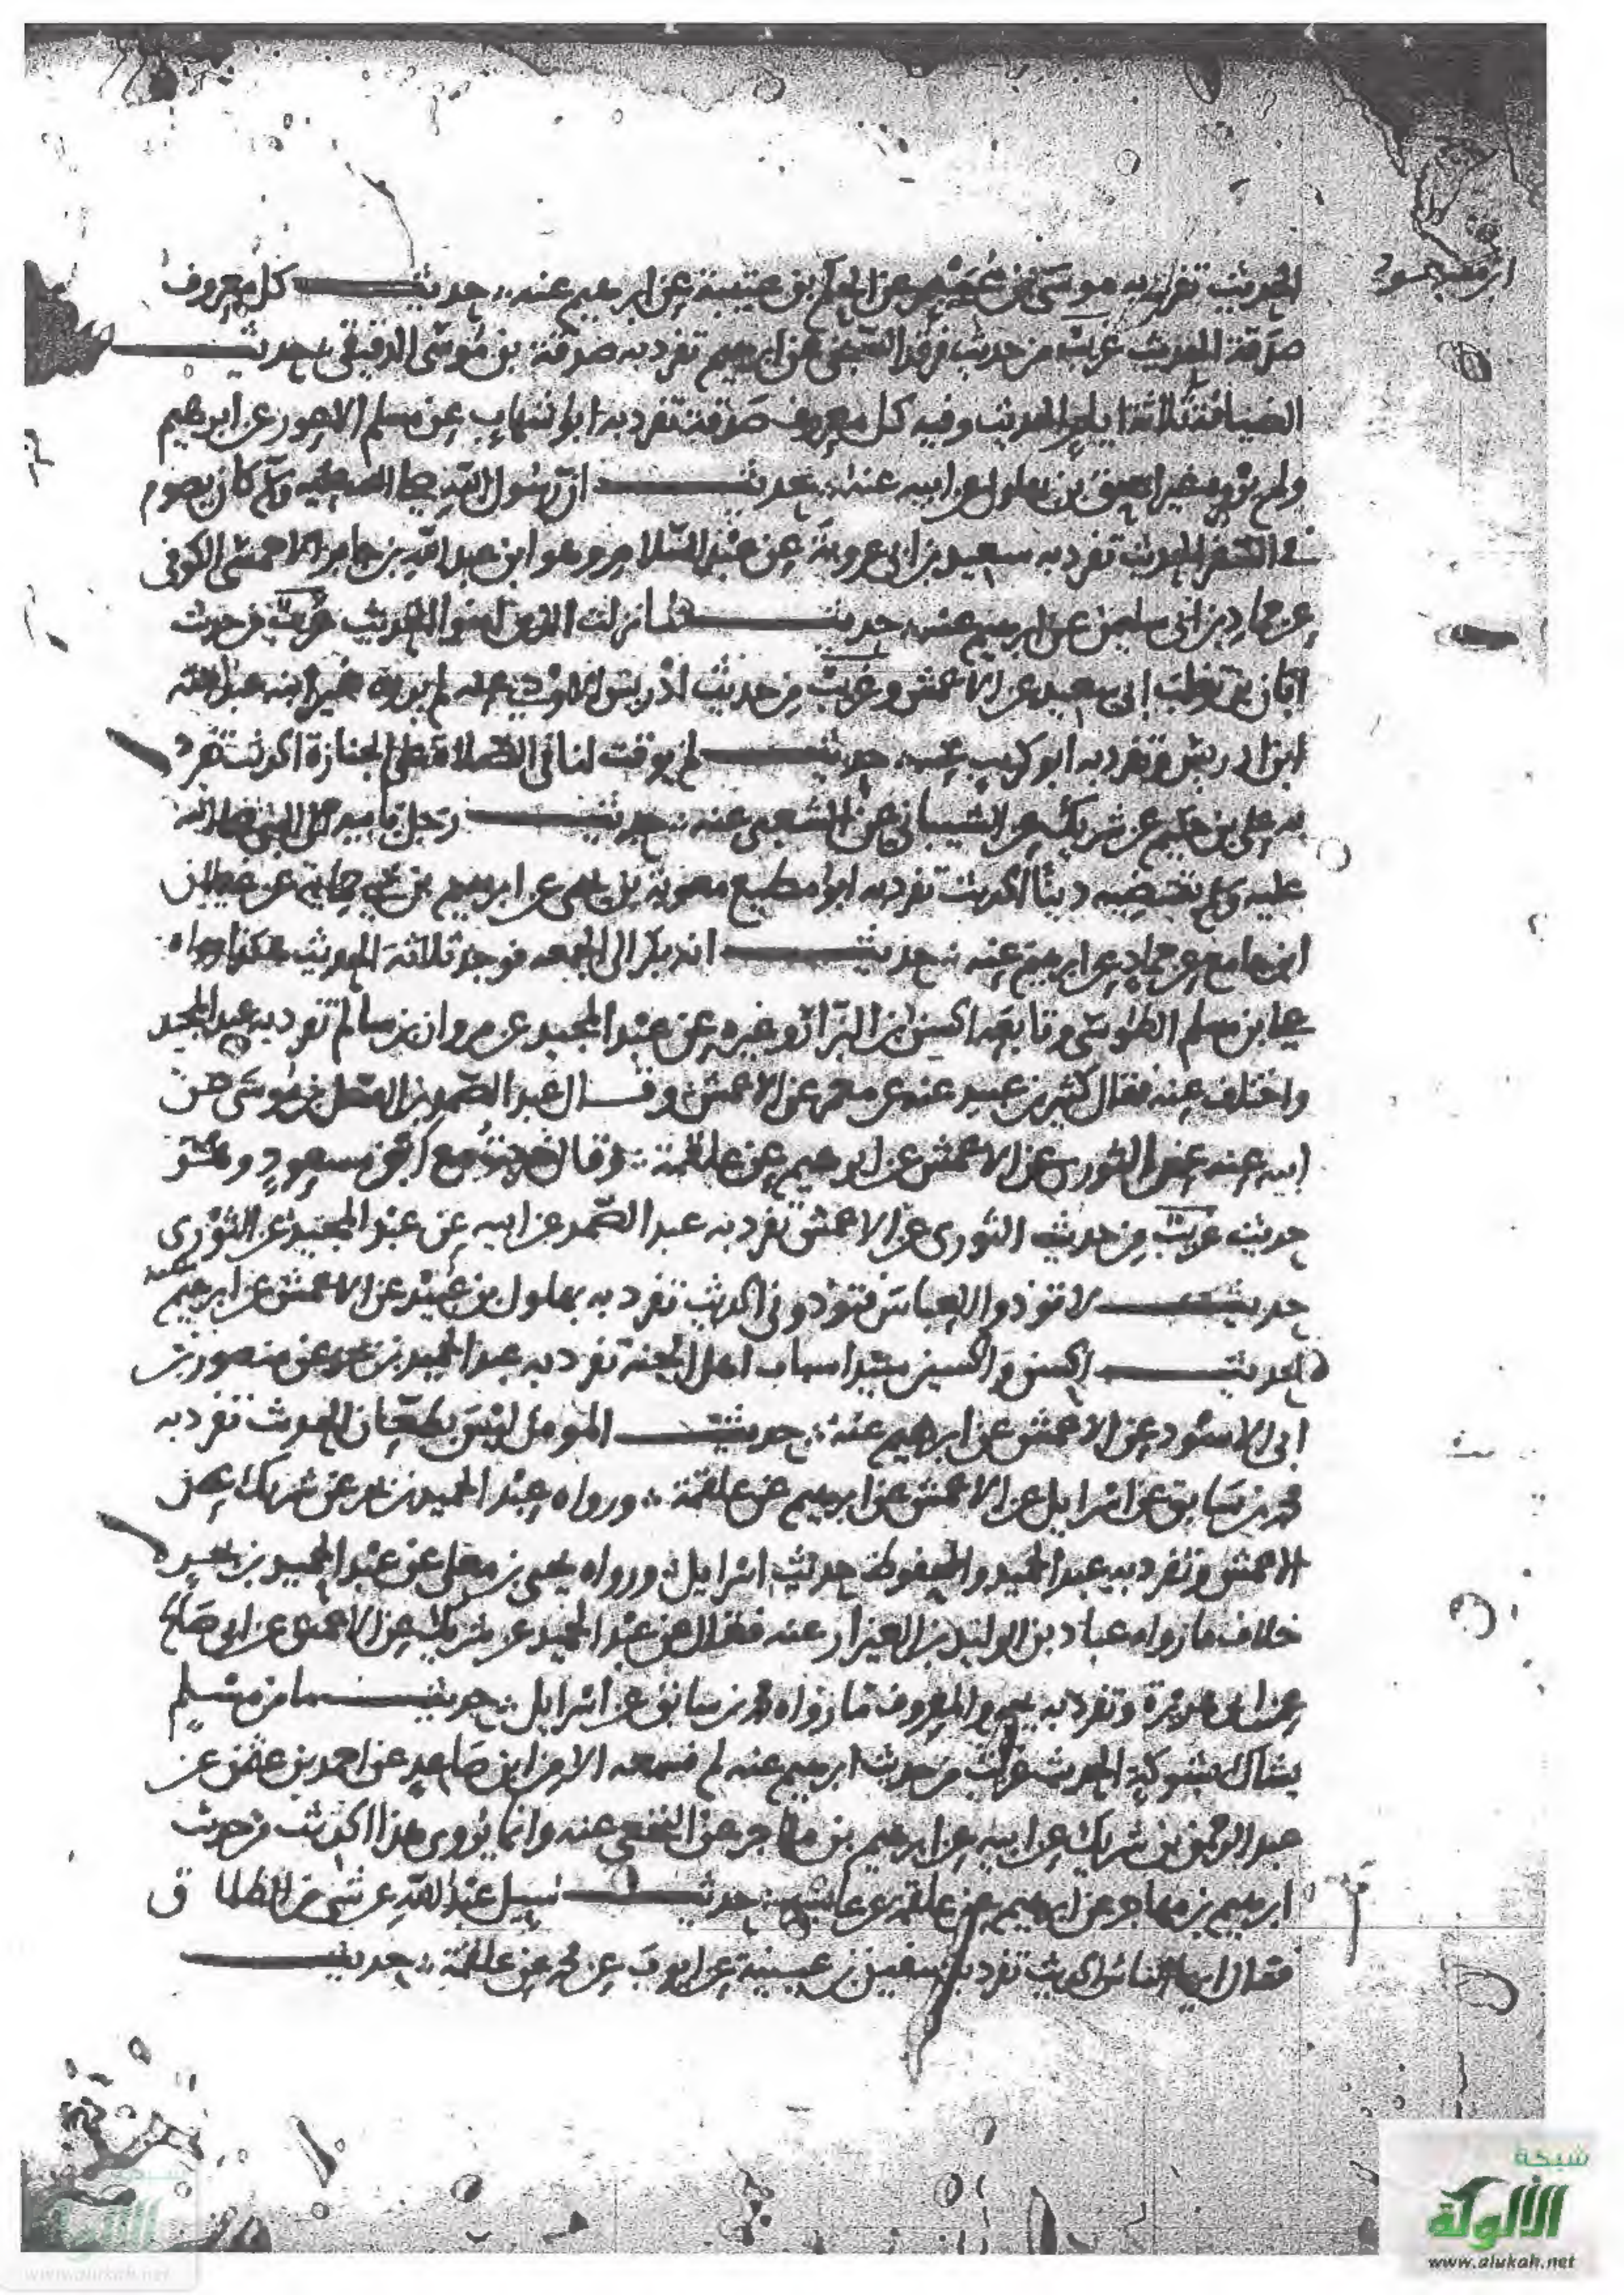 ابن مسعود
الحديث تفرد به موسى بن عمير عن الحكم بن عتيبة عن ابرهيم عنه حديث كل معروف
صدقة الحديث غريب من حديث فرقد السبخي عن ابرهيم تفرد به صدقة بن موسى الدقيقي حديث
الضيافة ثلاثة ايام الحديث وفيه كل معروف صدقة تفرد به ابو شهاب عن مسلم الاعور عن ابرهيم
ولم يروه غير اسحق بن بهلول عن ابيه عنه حديث ان رسول الله صلى الله عليه وسلم كان يصوم
في السفر الحديث تفرد به سعيد بن ابي عروبة عن عبد السلام وهو ابن عبد الله بن جابر الاحمسي الكوفي
عن حماد بن ابي سليمن عن ابرهيم عنه حديث لما نزلت الذين امنوا الحديث غريب من حديث
ابان بن تغلب ابي سعيد عن الاعمش وغريب من حديث ادريس الاودي عنه لم يروه غير ابنه عبد الله
ابن ادريس وتفرد به ابو كريب عنه حديث لم يوقت لنا في الصلاة على الجنازة الحديث تفرد
به علي بن حكيم عن شريك عن الشيباني عن الشعبي عنه حديث رجل النبي صلى الله
عليه وسلم دينا الحديث تفرد به ابو مطيع معوية بن يحيى عن ابرهيم بن عن غيلان
ابن جامع عن حماد عن ابرهيم عنه حديث انه بكر الى الجمعه فوجد ثلاثة الحديث هكذا رواه
علي بن مسلم الطوسي وتابعه الحسن بن البزار وغيره عن عبد المجيد عن مروان بن سالم تفرد به عبد المجيد
واختلف عنه فقال كثير بن عبيد عنه عن معمر عن الاعمش وقال عبد الصمد بن الفضل بن موسى عن
ابيه عنه عن الثوري عن الاعمش عن ابرهيم عن علقمة وقال خرجت مع ابن مسعود وهو
حديث غريب من حديث الثوري عن الاعمش تفرد به عبد الصمد عن ابيه عن عبد المجيد عن الثوري
حديث لا تؤذوا العباس فتؤذوني الحديث تفرد به بهلول بن عبيد عن الاعمش عن ابرهيم عنه
حديث الحسن والحسين سيدا شباب اهل الجنة تفرد به عبد الحميد بن بحر عن منصور بن
ابي الاسود عن الاعمش عن ابرهيم عنه حديث المومن ليس بطعان الحديث تفرد به
محمد بن سابق عن اسرايل عن الاعمش عن ابرهيم عن علقمة ورواه عبد الحميد بن بحر عن شريك عن
الاعمش وتفرد به عبد الحميد والمحفوظ حديث اسرايل ورواه يحيى بن معلى عن عبد الحميد بن بحر
خلاف ما رواه عباد بن الوليد بن العيزار عنه فقال عن عبد الحميد عن شريك عن الاعمش عن ابي صالح
عن ابي هريرة وتفرد به والمعروف ما رواه محمد بن سابق عن اسرايل حديث ما من مسلم
يشاك بشوكة الحديث غريب من حديث ابرهيم عنه لم نسمعه الا من ابن صاعد عن احمد بن عثمن عن
عبد الرحمن بن شريك عن ابيه عن ابرهيم بن مهاجر عن النخعي عنه وانما يروى هذا الحديث من حديث
ابرهيم بن مهاجر عن ابرهيم عن علقمة عن عايشة حديث سيل عبد الله عن شي من الطلاق
فقال ايها الناس الحديث تفرد به سفين بن عيينة عن ايوب عن محمد عن علقمة حديث
شبكة
الألوكة
www.alukah.net
www.alukah.net